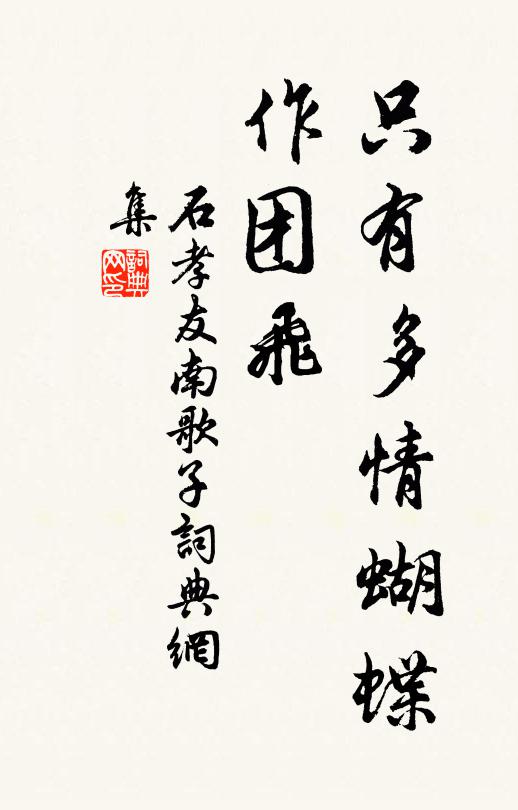 只有多情蝴蝶
作团飛
石孝友南歌子詞典網
集
詞典
网印